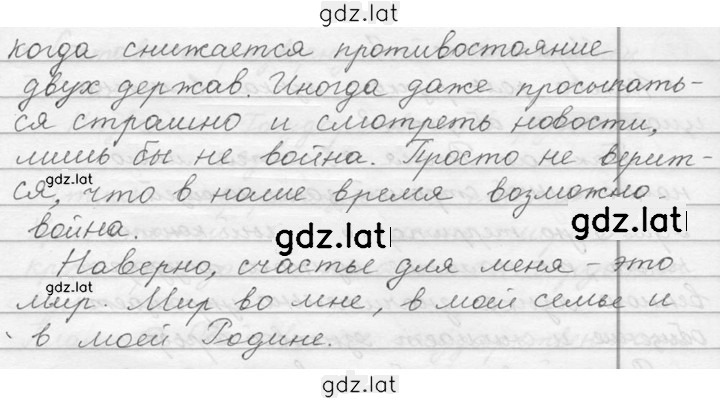 gdz.lat
когда снижается противостояние
двух держав. Иногда даже просыпать-
ся страшно и смотреть новости,
лишь бы не война. Просто не верит-
gdz.lat
ся, что в наше время возможно
война.
gdz.lat
gdz.lat
Наверно, счастье для меня - это
мир. Мир во мне, в моей семье и
в моей Родине.
gdz.lat